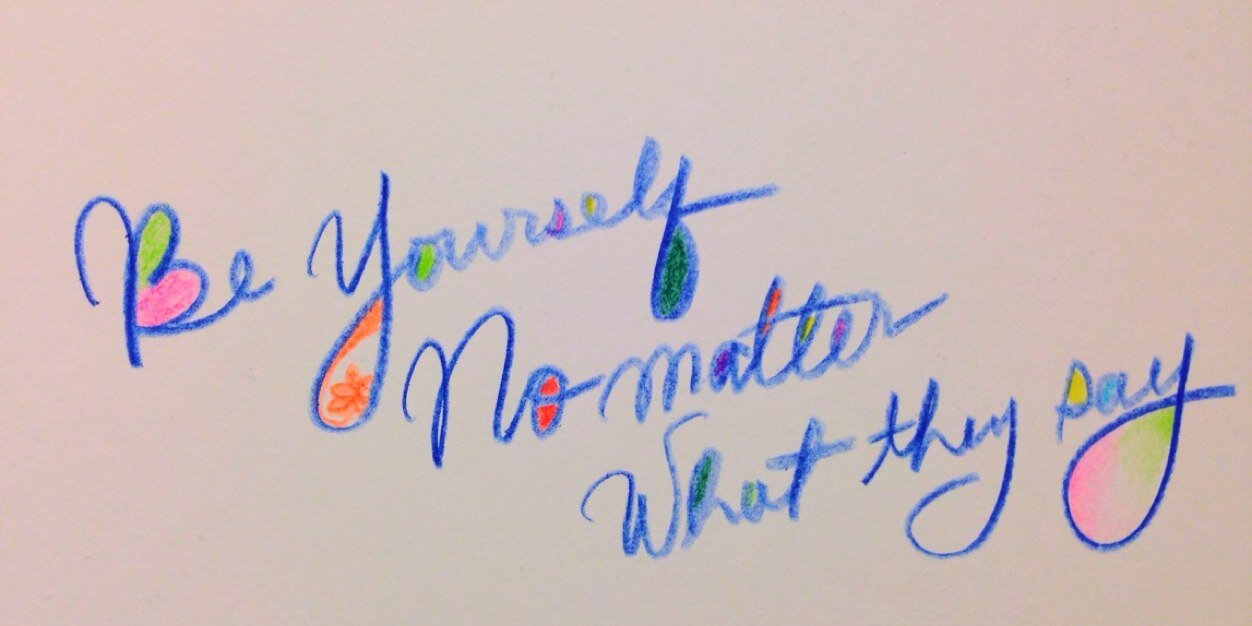 Be Yourself
No matter
What they say